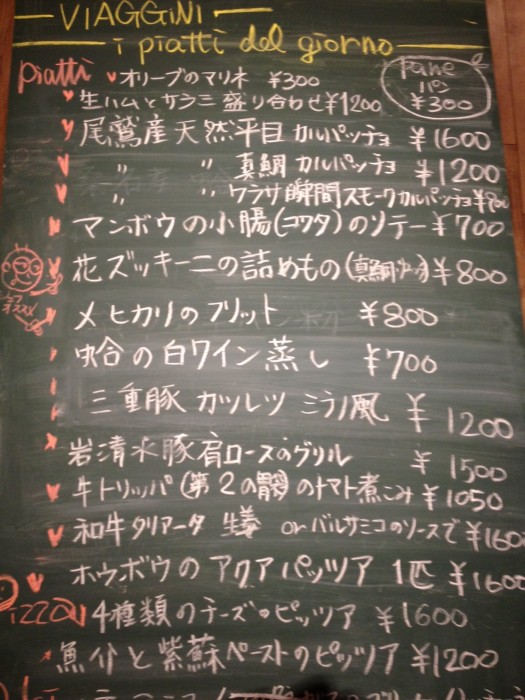 VIAGGINI
i piatti del giorno
Piatti
オリーブのマリネ ¥300
Pane
パン
¥300
生ハムとサラミ盛り合わせ¥1200
尾鷲産天然平目カルパッチョ ¥1600
〃 〃 真鯛カルパッチョ ¥1200
〃 〃 ワラサ瞬間スモークカルパッチョ
マンボウの小腸(コワタ)のソテー ¥700
花ズッキーニの詰めもの ¥800
オススメ
メヒカリのフリット ¥800
蛤の白ワイン蒸し ¥700
三重豚 カツレツ ミラノ風 ¥1200
岩清水豚肩ロースのグリル ¥1500
牛トリッパ(第2の胃)のトマト煮こみ ¥1050
和牛タリアータ or バルサミコのソースで
ホウボウのアクアパッツア 1匹
Pizza 4種類のチーズのピッツア ¥1600
魚介と紫蘇ペーストのピッツア ¥1200